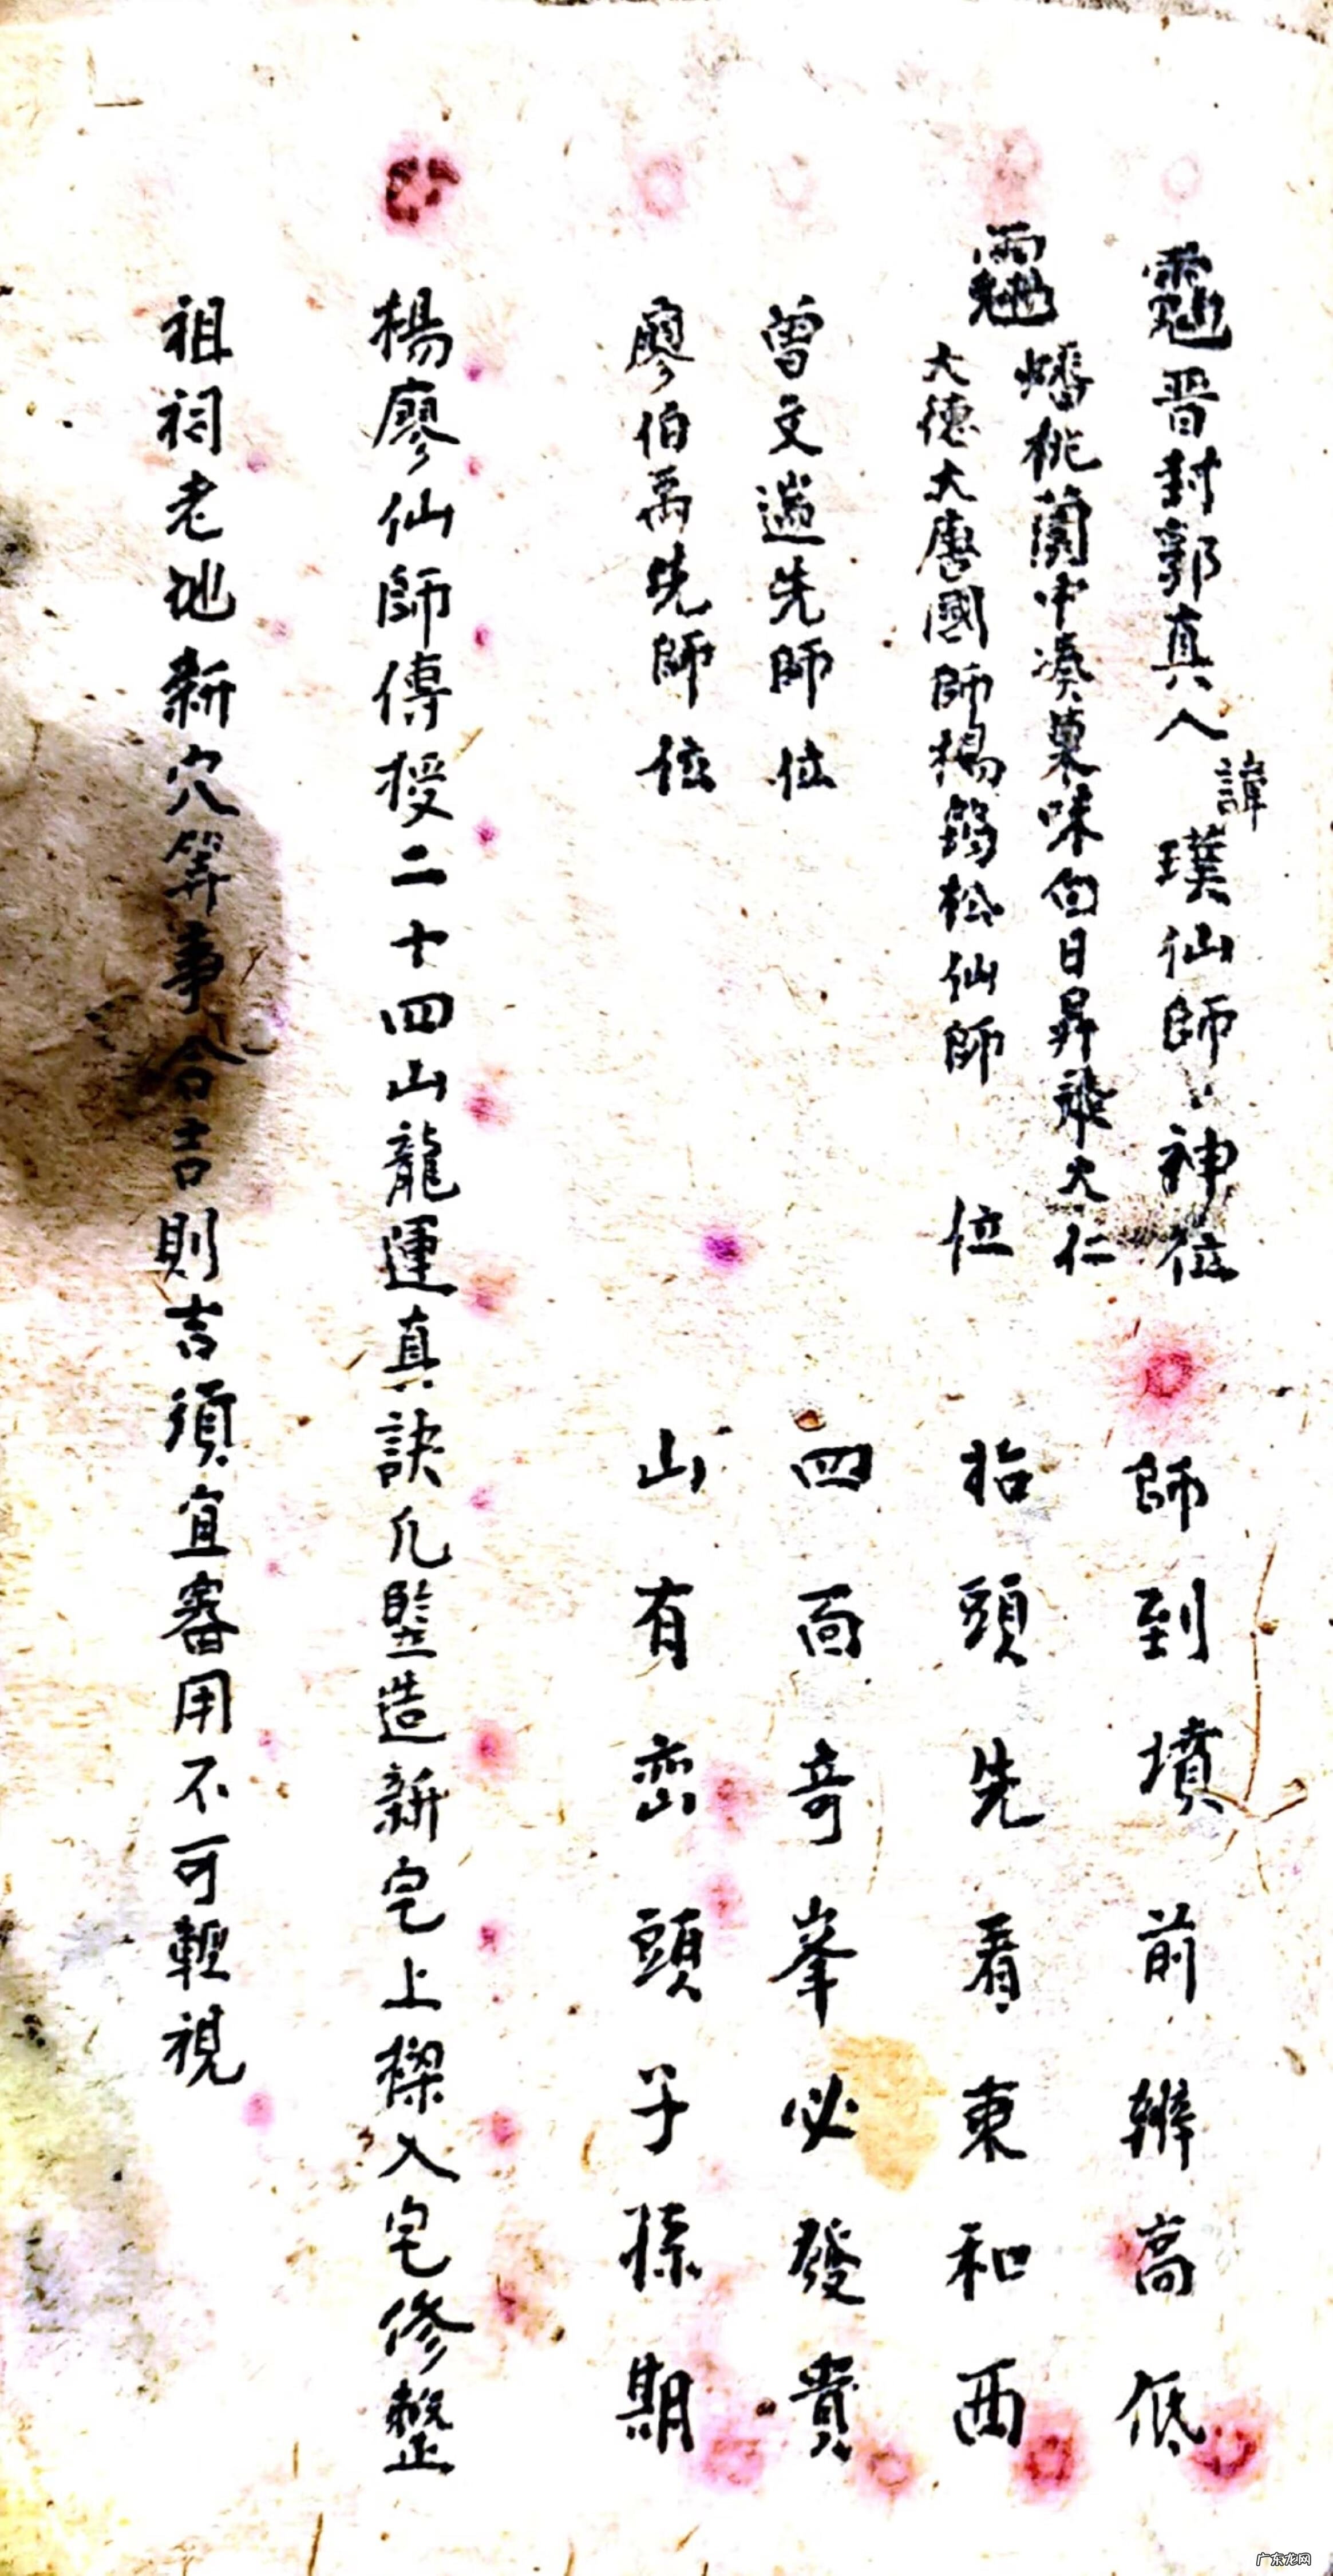 晋封郭真人諱璞仙師〻神位
蟠桃蘭中凑東味向日昇飛大仁
大德大唐國師楊筠松仙師位
曾文遄先師位
廖伯禹先師位
師到墳前辦高低
抬頭先看東和西
四面奇峯必發貴
山有巒頭子孫期
楊廖仙師傳授二十四山龍運真訣凡竪造新宅上樑入宅修整
祖祠老地新穴算事合吉則吉須宜審用不可輕視
广东龙网